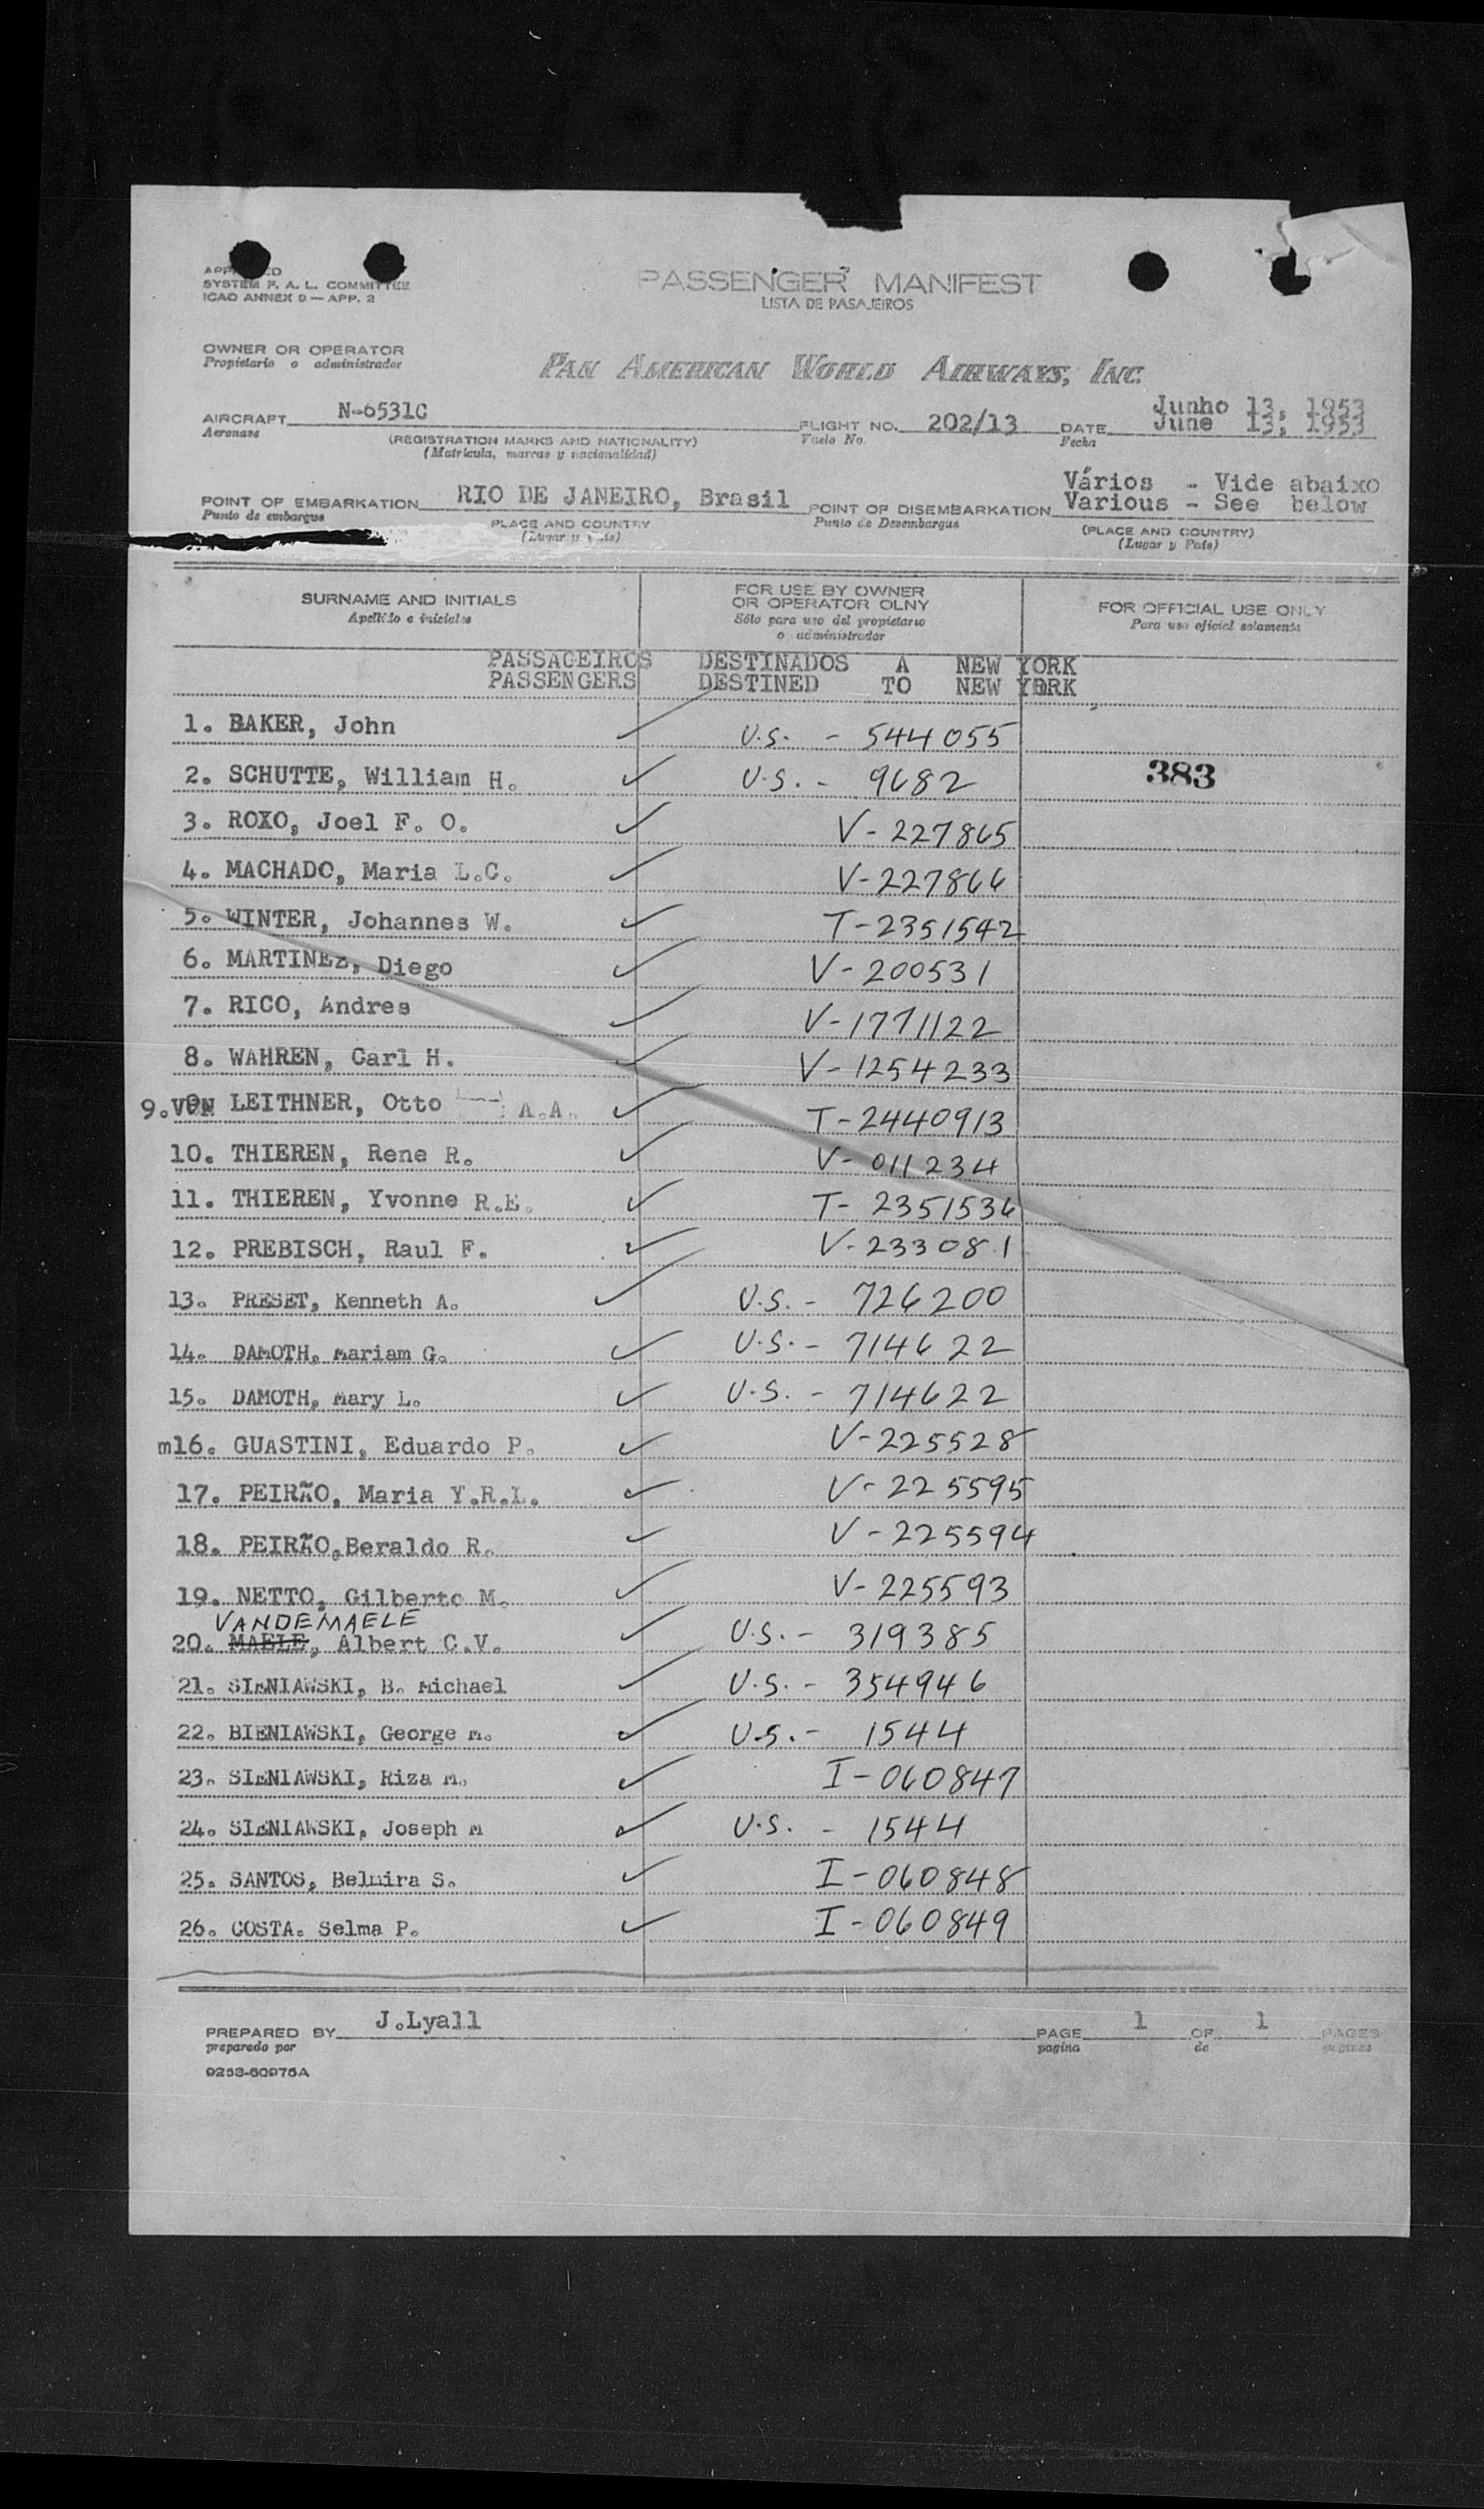 APPROVED
SYSTEM F. A. L. COMMITTEE
ICAO ANNEX 9 — APP. 2
PASSENGER MANIFEST
LISTA DE PASAJEIROS
OWNER OR OPERATOR
Propietario o administrador
PAN AMERICAN WORLD AIRWAYS, INC.
AIRCRAFT N-6531C
Aeronave
(REGISTRATION MARKS AND NATIONALITY)
(Matricula, marcas y nacionalidad)
FLIGHT NO. 202/13
Vuelo No.
Junho 13, 1953
DATE June 13, 1953
Fecha
POINT OF EMBARKATION RIO DE JANEIRO, Brasil
Punto de embarque
PLACE AND COUNTRY
(Lugar y País)
Vários - Vide abaixo
POINT OF DISEMBARKATION Various - See below
Punto de Desembarque
(PLACE AND COUNTRY)
(Lugar y País)
SURNAME AND INITIALS
Apellido e iniciales
FOR USE BY OWNER
OR OPERATOR OLNY
Sólo para uso del propietario
o administrador
FOR OFFICIAL USE ONLY
Para uso oficial solamente
PASSAGEIROS DESTINADOS A NEW YORK
PASSENGERS DESTINED TO NEW YORK
1. BAKER, John U.S. - 544055
2. SCHUTTE, William H. U.S. - 9682 383
3. ROXO, Joel F. O. V-227865
4. MACHADO, Maria L.C. V-227866
5. WINTER, Johannes W. T-2351542
6. MARTINEZ, Diego V-200531
7. RICO, Andres V-1771122
8. WAHREN, Carl H. V-1254233
9. VON LEITHNER, Otto A.A. T-2440913
10. THIEREN, Rene R. V-011234
11. THIEREN, Yvonne R.E. T-2351536
12. PREBISCH, Raul F. V-233081
13. PRESET, Kenneth A. U.S. - 726200
14. DAMOTH, Mariam G. U.S. - 714622
15. DAMOTH, Mary L. U.S. - 714622
m16. GUASTINI, Eduardo P. V-225528
17. PEIRÃO, Maria Y.R.L. V-225595
18. PEIRÃO, Beraldo R. V-225594
19. NETTO, Gilberto M. V-225593
VANDEMAELE
20. MAELE, Albert C.V. U.S. - 319385
21. SIENIAWSKI, B. Michael U.S. - 354946
22. BIENIAWSKI, George M. U.S. - 1544
23. SIENIAWSKI, Riza M. I-060847
24. SIENIAWSKI, Joseph M U.S. - 1544
25. SANTOS, Belmira S. I-060848
26. COSTA. Selma P. I-060849
PREPARED BY J.Lyall
preparado por
PAGE 1 OF 1 PAGES
pagina de paginas
9253-60975A